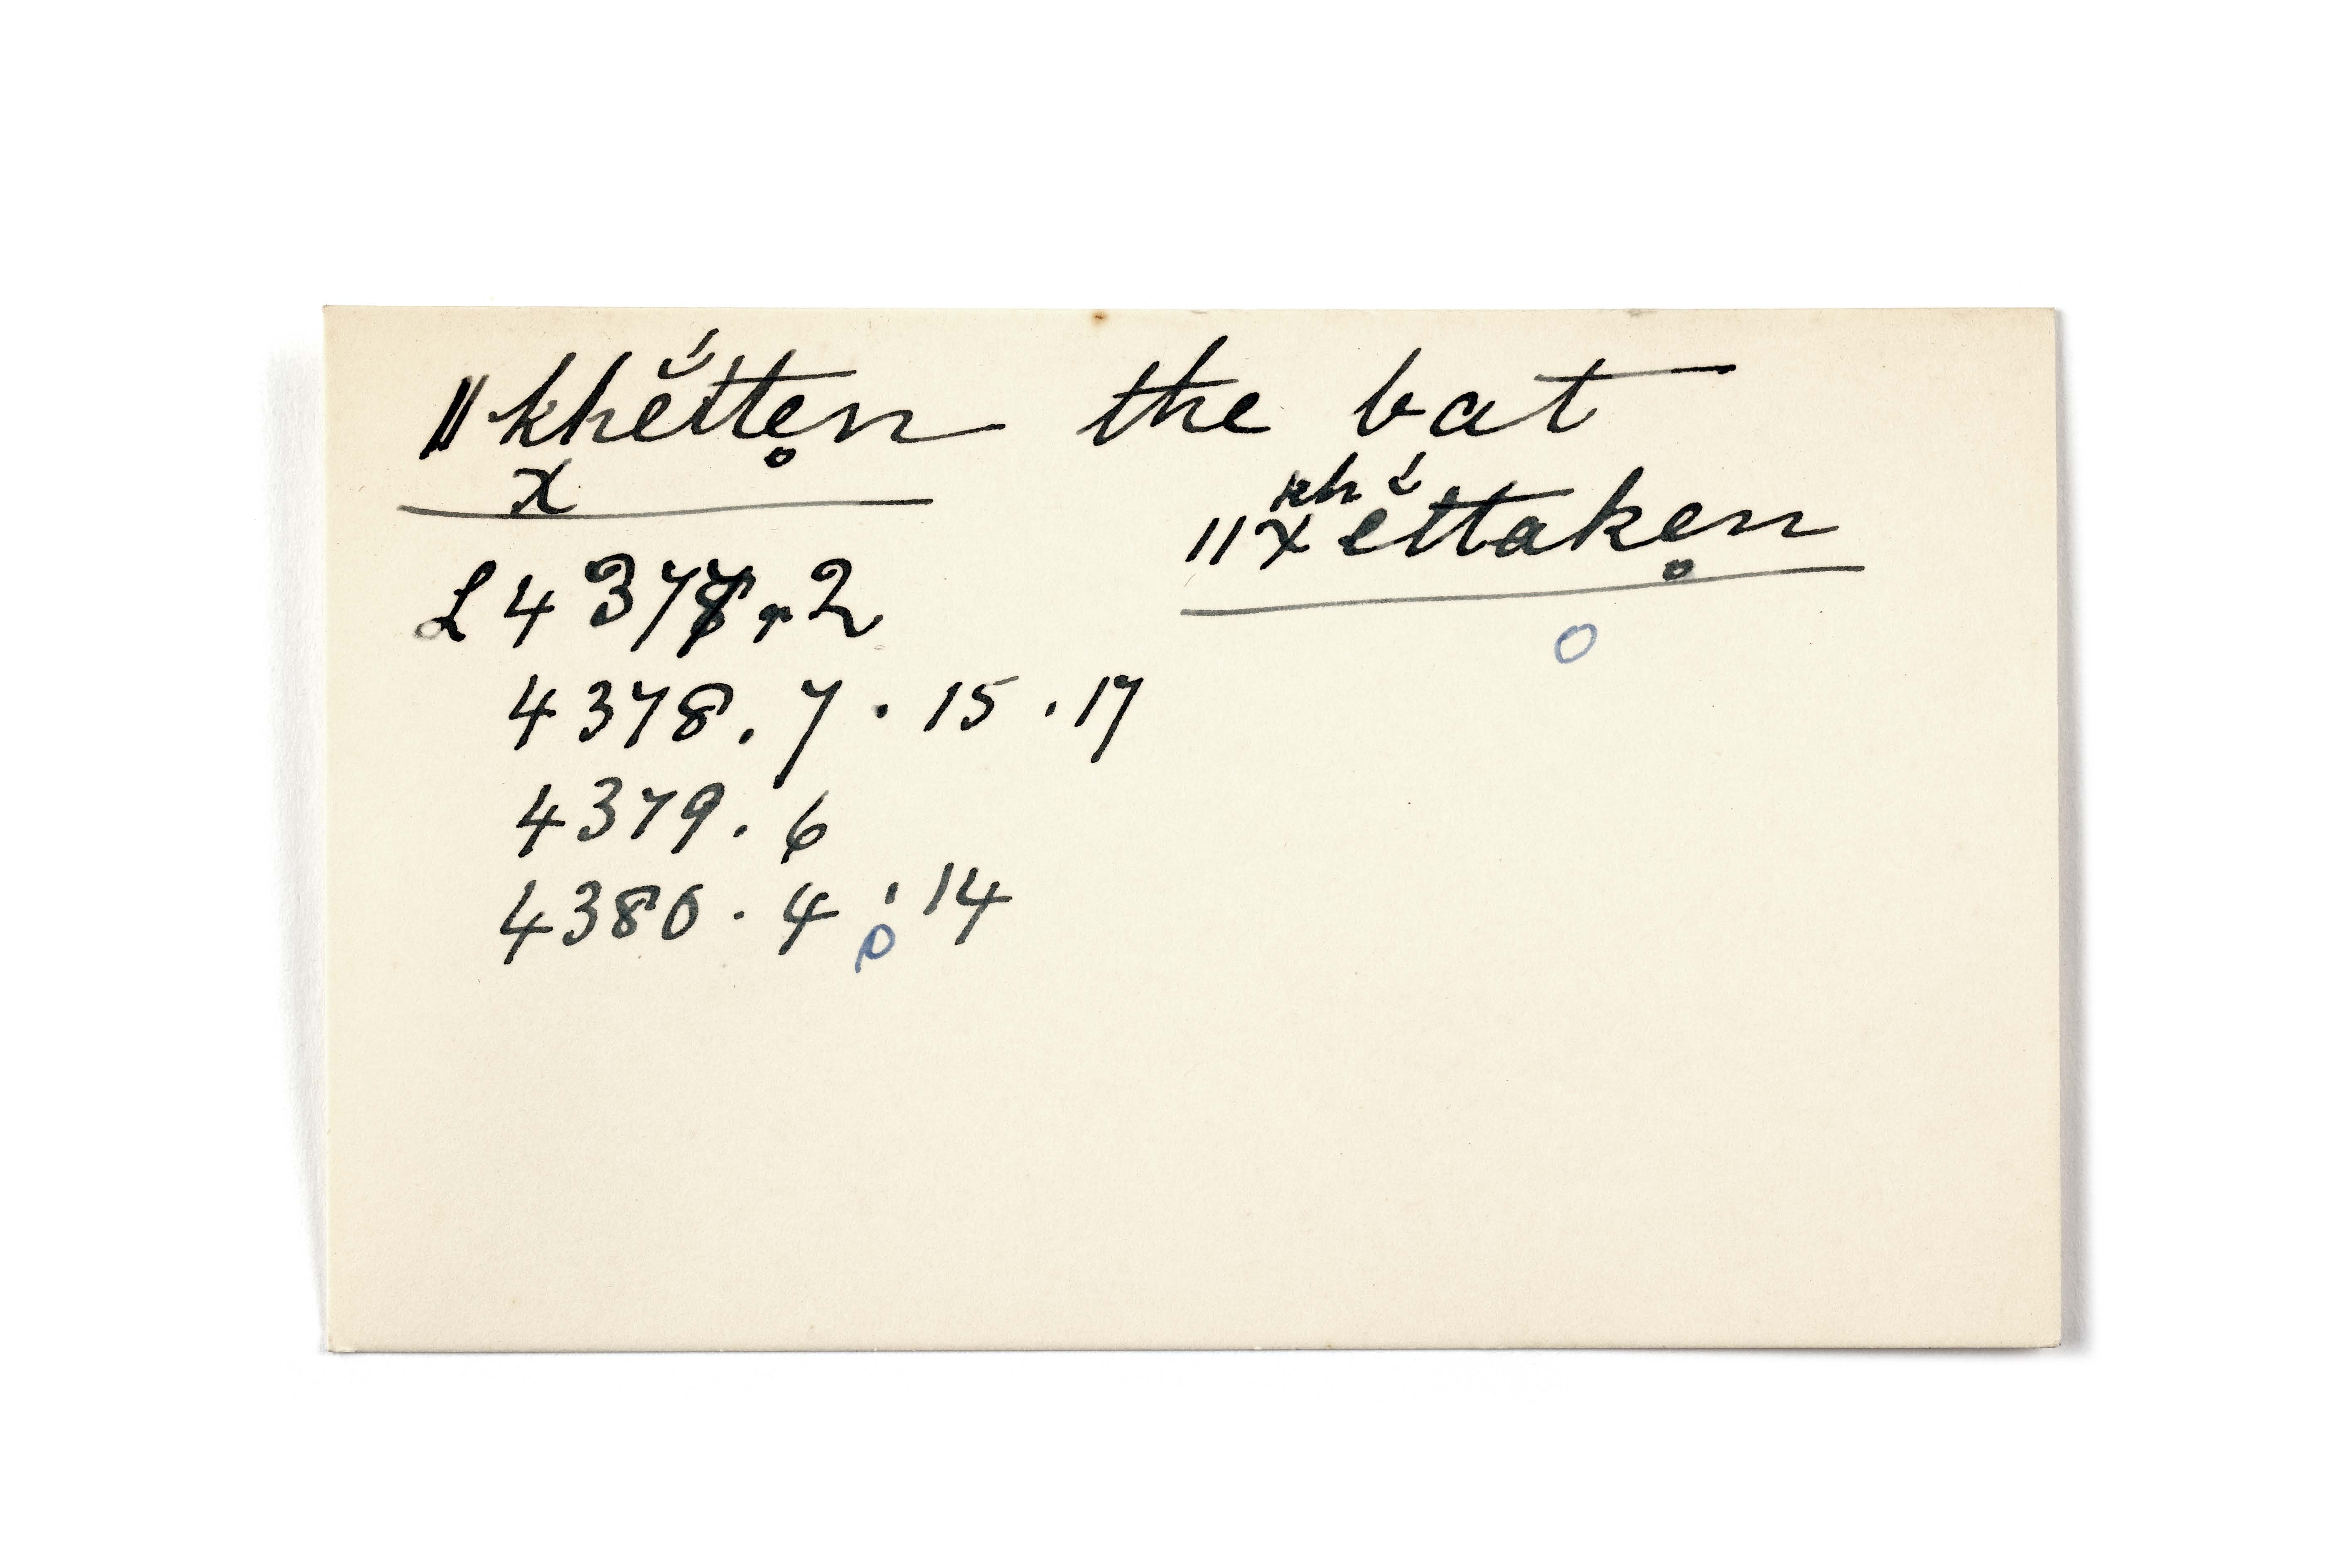 ǁkhĕ́ttẹn the bat
χ
kh
ǁχĕ́ttakẹn
L 4378.2
4378. 7 . 15 . 17
4379. 6
4380. 4 ; 14